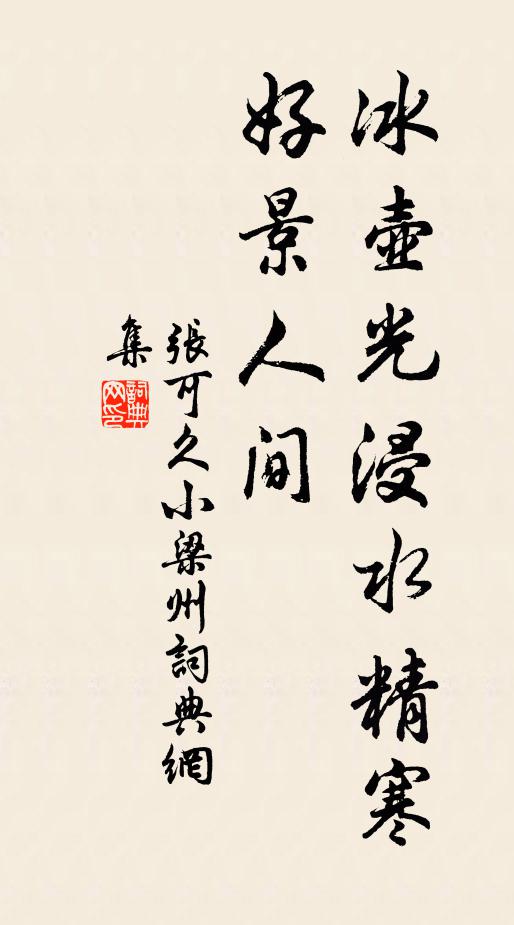 冰壺光浸水精寒
好景人间
張可久小梁州詞典網
集
詞典网印